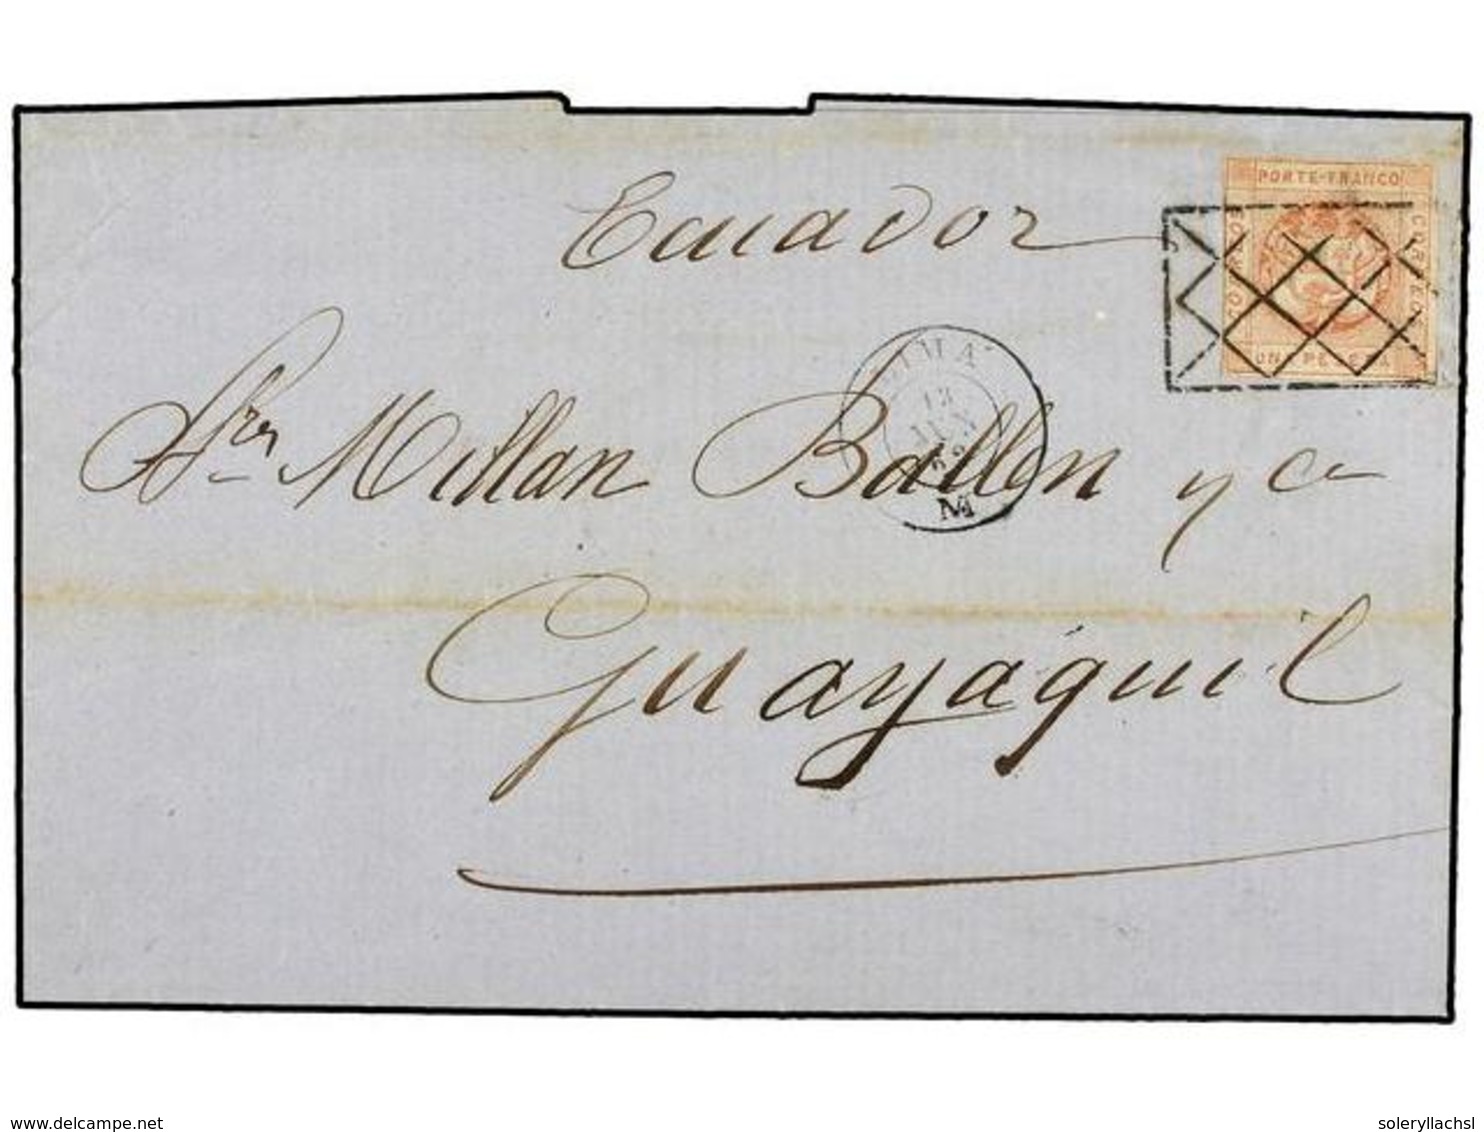 PORTE-FRANCO
CORREOS
UNA PESETA
Ecuador
LIMA
13
JUN
M
Srs Millan Ballen y ca
Guayaquil
www.delcampe.net
soleryllachsl